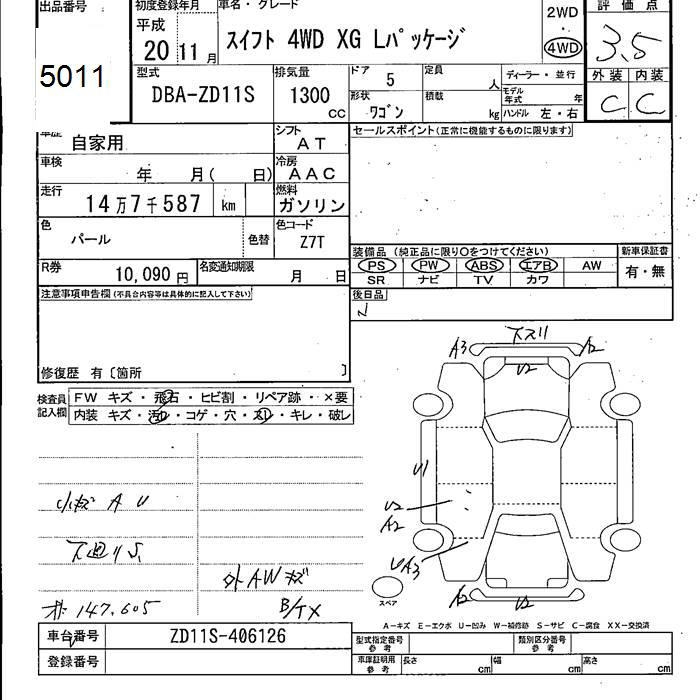 出品番号
初度登録年月
車名・グレード
評 価 点
平成
20 11 月
スイフト 4WD XG Lパッケージ
2WD
・
4WD
3.5
5011
型式
DBA-ZD11S
排気量
1300
CC
ドア 5
定員
人
ディーラー・並行
形状
ワゴン
積載
kg
モデル年式
年
ハンドル 左・右
外装 内装
C C
車歴
自家用
シフト
AT
セールスポイント(正常に機能するものに限ります)
車検
年 月( 日)
冷房
AAC
走行
14万7千587 km
燃料
ガソリン
色
パール
色替
色コード
Z7T
装備品 (純正品に限り○をつけてください)
新車保証書
PS PW ABS エアB AW
有・無
SR ナビ TV カワ
R券
10,090 円
名変通知期限
月 日
後日品
注意事項申告欄(不具合内容等は具体的に記入して下さい)
修復歴 有〔箇所 〕
検査員記入欄
FW キズ・飛石・ヒビ割・リペア跡・×要
内装 キズ・汚れ・コゲ・穴・スレ・キレ・破レ
下スリ
A3 A2
U2
U1
U2
A2
UA3
A2 U2
小キズ A U
下廻りS
外AWキズ
オ 147,605
B/TX
スペア
A-キズ E-エクボ U-凹み W-補修跡 S-サビ C-腐食 XX-交換済
車台番号
ZD11S-406126
型式指定番号
参考
類別区分番号
参考
登録番号
車庫証明用
参考
長さ cm
幅 cm
高さ cm